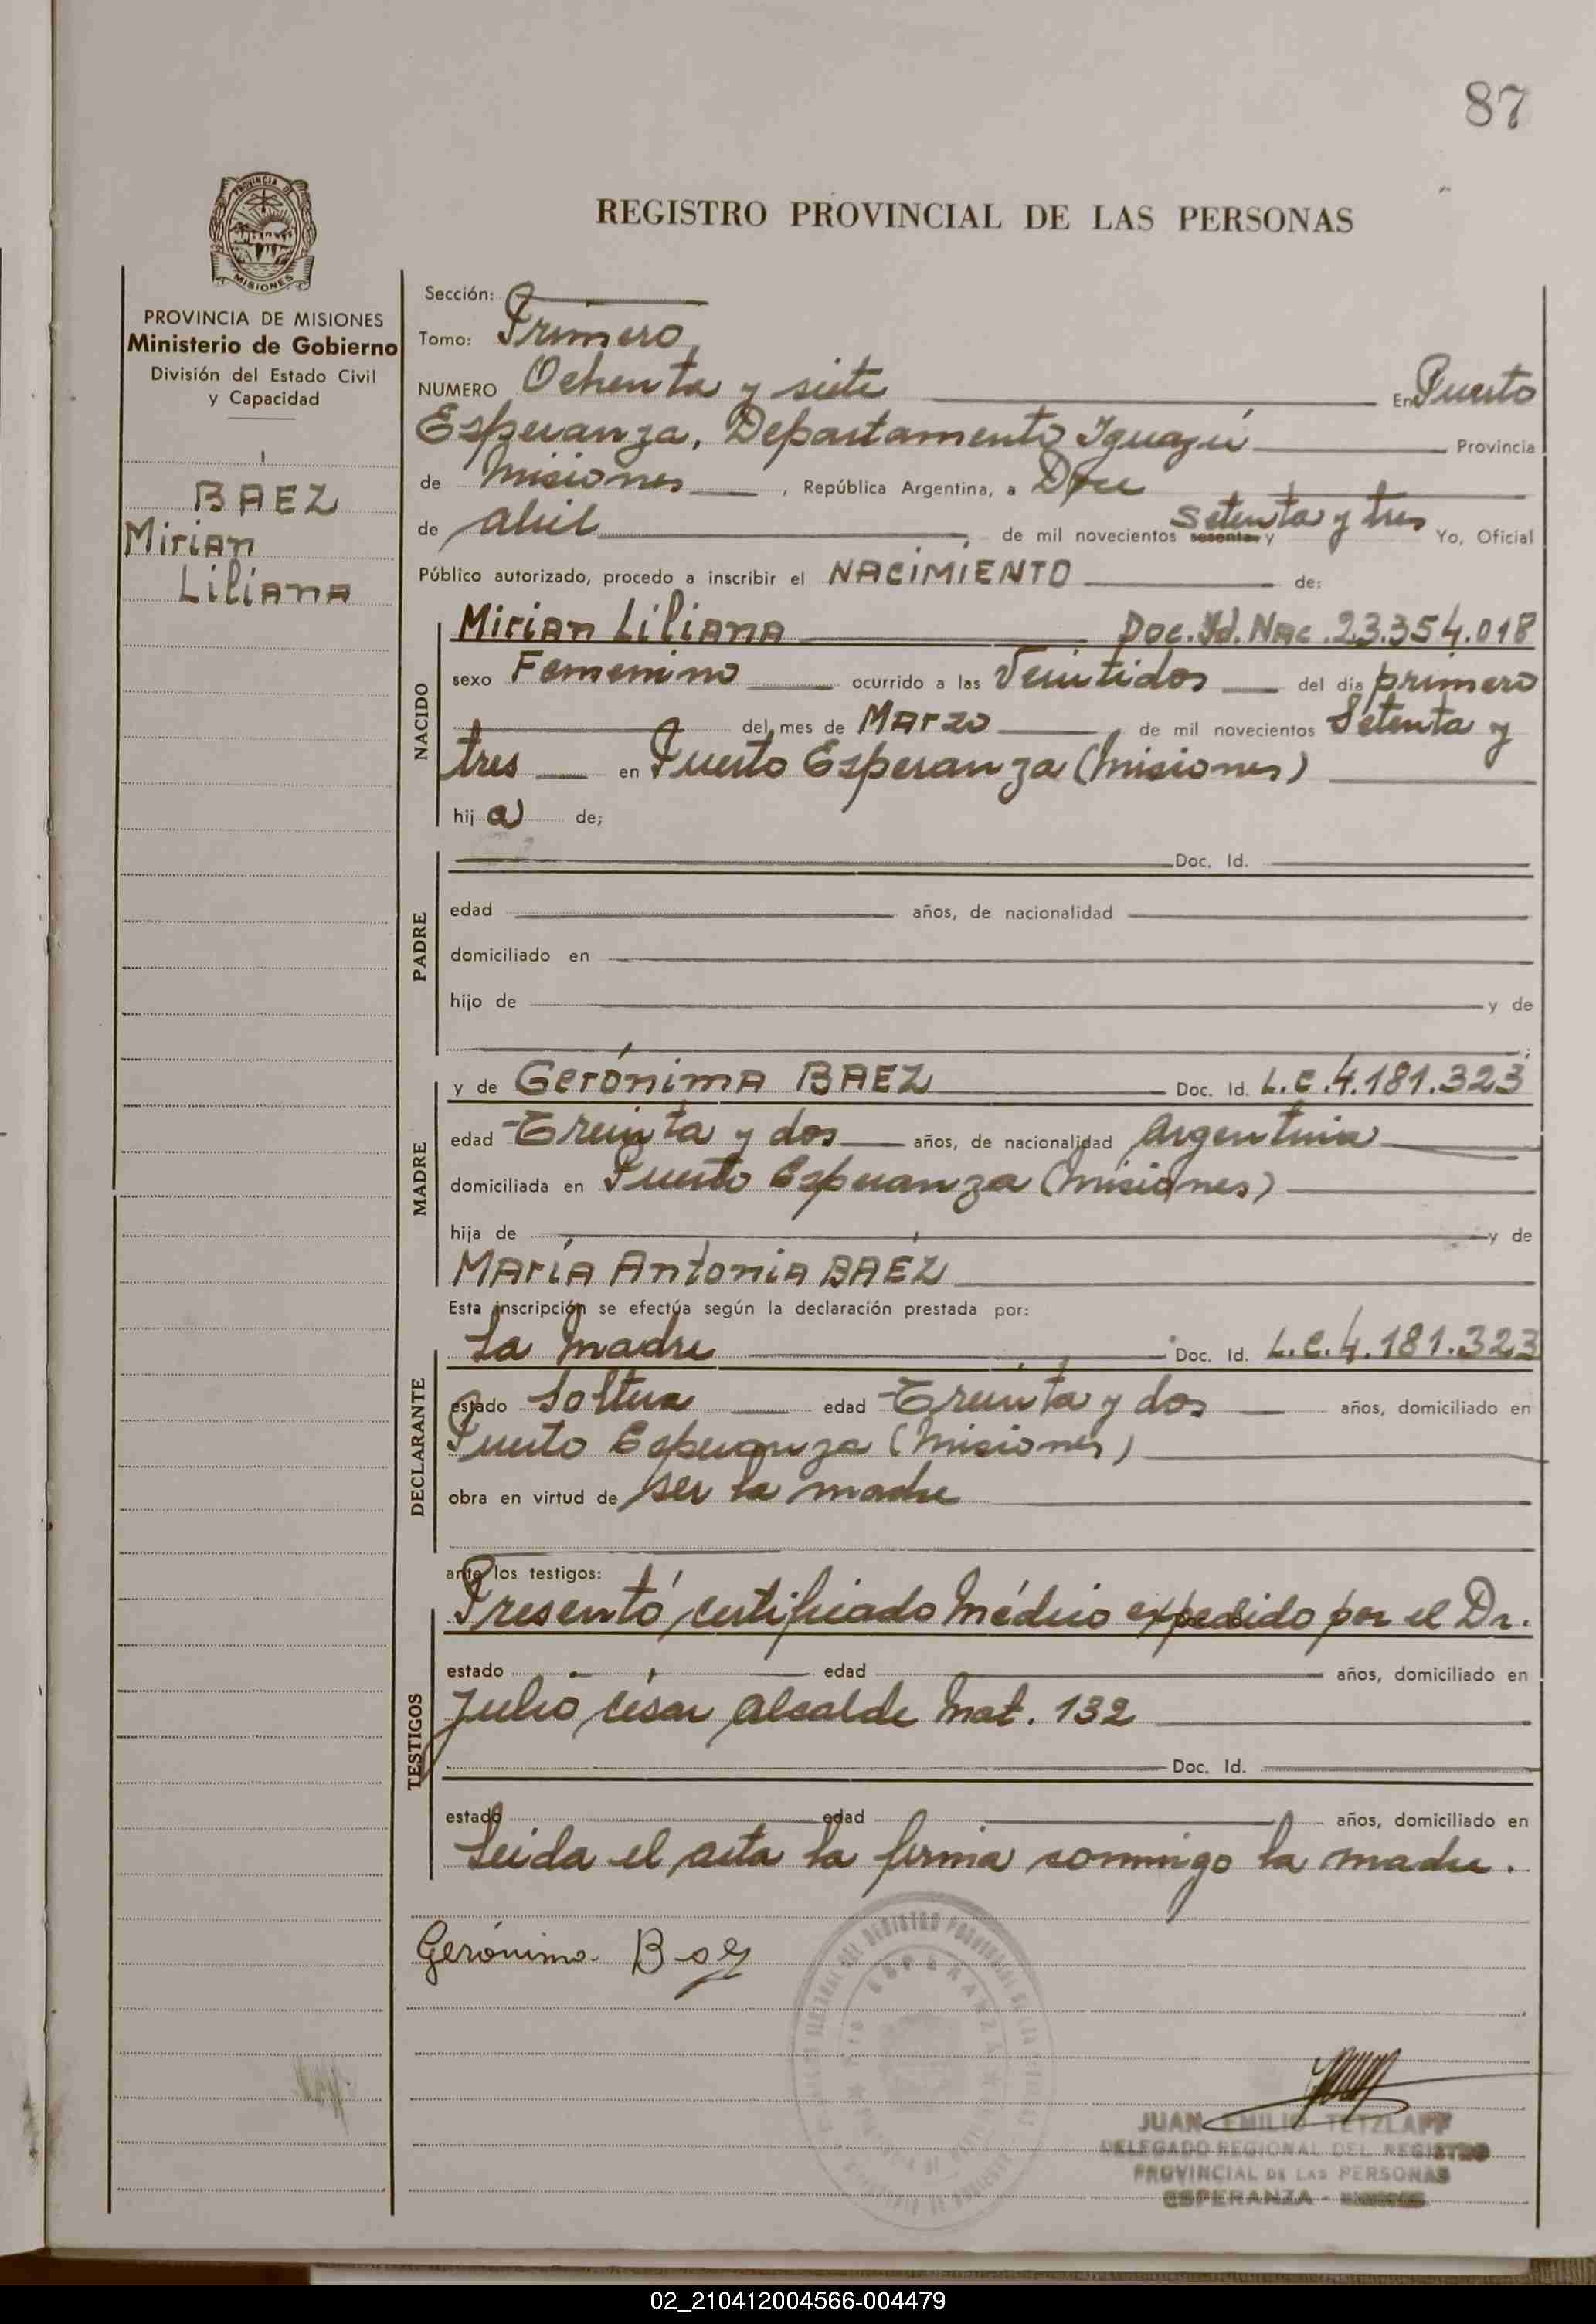 87
PROVINCIA DE
MISIONES
REGISTRO PROVINCIAL DE LAS PERSONAS
PROVINCIA DE MISIONES
Ministerio de Gobierno
División del Estado Civil
y Capacidad
BAEZ
Mirian
Liliana
Sección:
Tomo: Primero
NUMERO Ochenta y siete En Puerto
Esperanza, Departamento Iguazú Provincia
de Misiones, República Argentina, a Doce
de abril de mil novecientos sesenta y setenta y tres Yo, Oficial
Público autorizado, procedo a inscribir el NACIMIENTO de:
NACIDO
Mirian Liliana Doc. Id. Nac. 23.354.018
sexo Femenino ocurrido a las Veintidos del día primero
del mes de Marzo de mil novecientos Setenta y
tres en Puerto Esperanza (Misiones)
hija de;
PADRE
Doc. Id.
edad años, de nacionalidad
domiciliado en
hijo de y de
MADRE
y de Gerónima BAEZ Doc. Id. L.C.4.181.323
edad Treinta y dos años, de nacionalidad Argentina
domiciliada en Puerto Esperanza (Misiones)
hija de y de
María Antonia BAEZ
Esta inscripción se efectúa según la declaración prestada por:
DECLARANTE
La Madre Doc. Id. L.C.4.181.323
estado Soltera edad Treinta y dos años, domiciliado en
Puerto Esperanza (Misiones)
obra en virtud de ser la madre
ante los testigos:
TESTIGOS
Presentó certificado Médico expedido por el Dr.
estado edad años, domiciliado en
Julio César Alcalde Mat. 132
Doc. Id.
estado edad años, domiciliado en
Leida el acta la firma conmigo la madre.
Gerónima Baez
JUAN EMILIO TETZLAFF
DELEGADO REGIONAL DEL REGISTRO
PROVINCIAL DE LAS PERSONAS
ESPERANZA - MISIONES
02_210412004566-004479